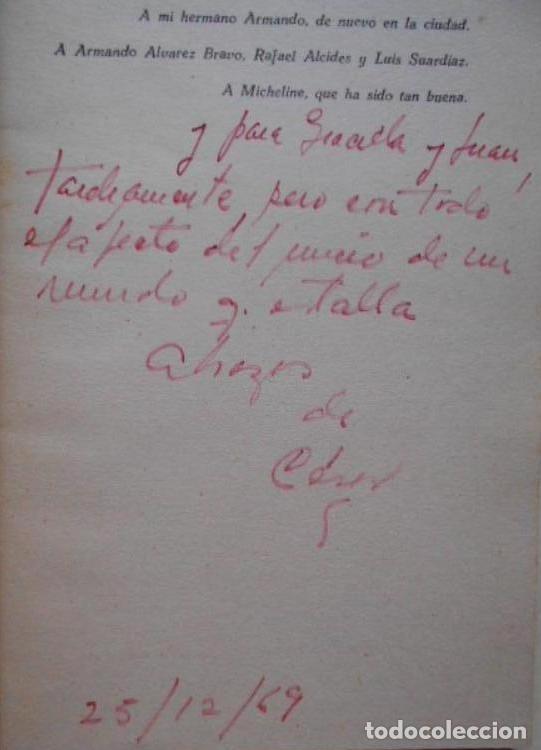 A mi hermano Armando, de nuevo en la ciudad.
A Armando Alvarez Bravo, Rafael Alcides y Luis Suardíaz.
A Micheline, que ha sido tan buena.
y para Graciela y Juan,
tardíamente pero con todo
el afecto del inicio de un
mundo q. estalla
Abrazos
de
César
25/12/69
todocoleccion